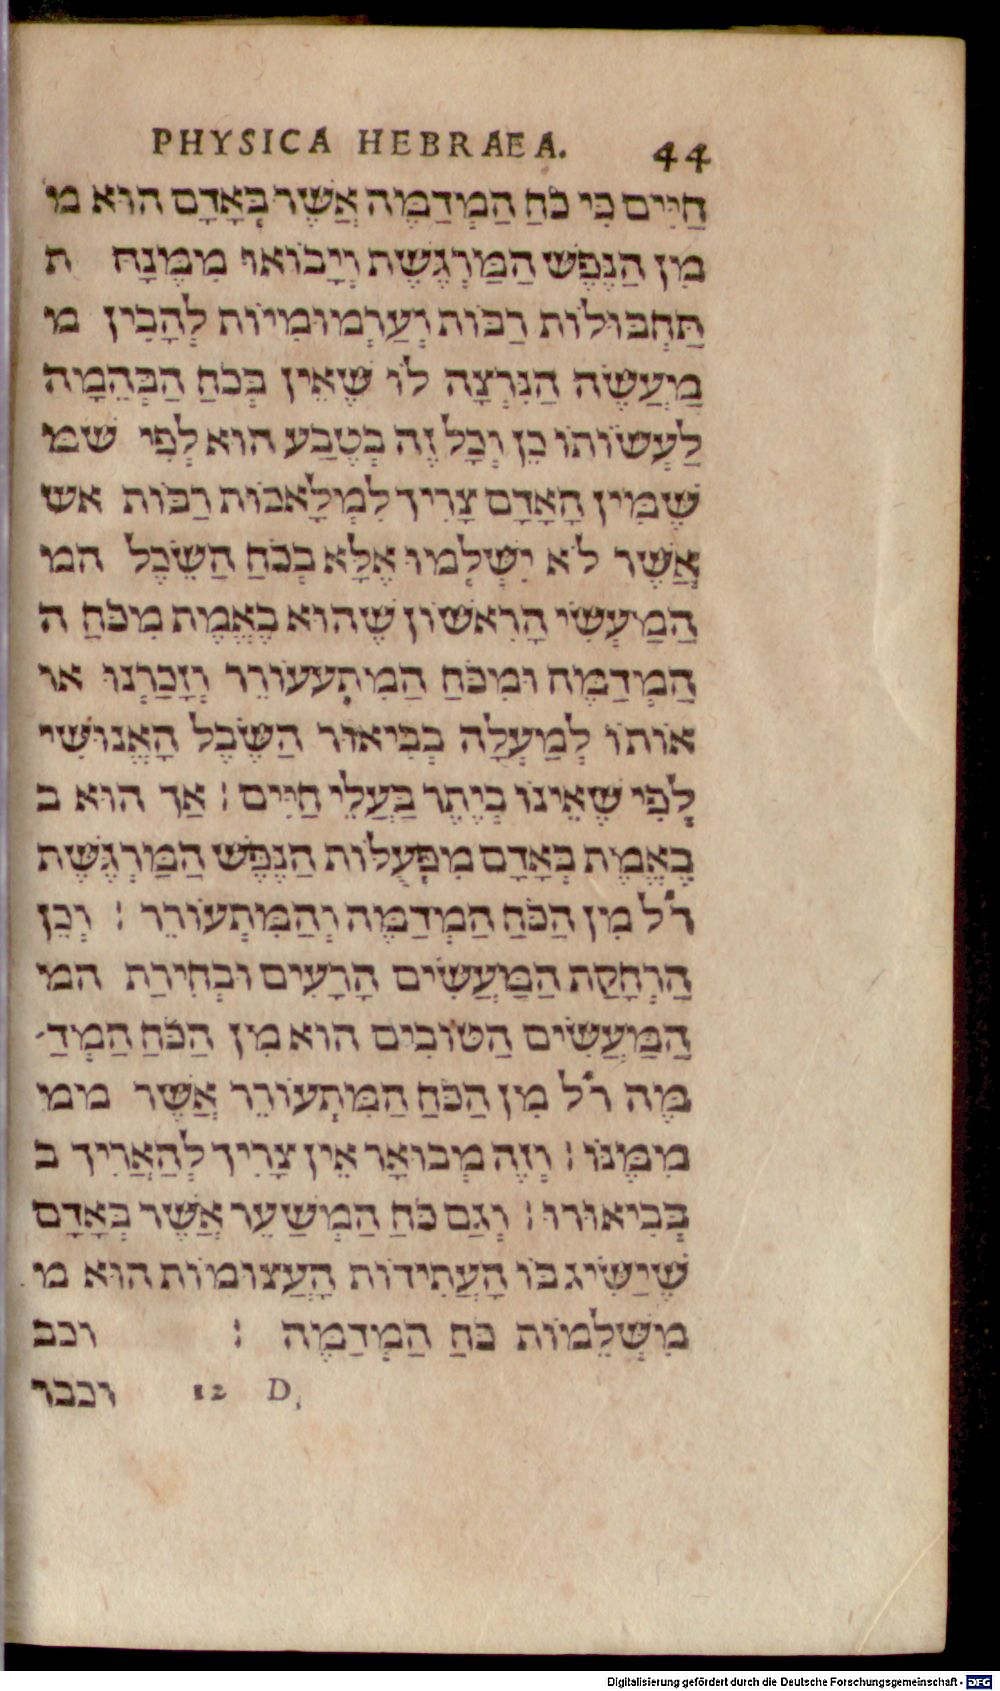 PHYSICA HEBRAEA. 44
חַיִּים כִּי כֹחַ הַמְדַמֶּה אֲשֶׁר בְּאָדָם הוּא מ
מִן הַנֶּפֶשׁ הַמַּרְגֶּשֶׁת וְיָבוֹאוּ מִמֶּנָּה ת
תַּחְבּוּלוֹת רַבּוֹת וְעַרְמוּמִיּוֹת לְהָכִין מ
מַעֲשֶׂה הַנִּרְצָה לוֹ שֶׁאֵין בְּכֹחַ הַבְּהֵמָה
לַעְשׂוֹתוֹ כֵן וְכָל זֶה בְטֶבַע הוּא לְפִי שׁמ
שֶׁמִּין הָאָדָם צָרִיךְ לִמְלָאכוֹת רַבּוֹת אש
אֲשֶׁר לֹא יִשְׁלְמוּ אֶלָּא בְכֹחַ הַשֵּׂכֶל המ
הַמַּעְשִׂי הָרִאשׁוֹן שֶׁהוּא בֶאֱמֶת מִכֹּחַ ה
הַמְדַמֶּה וּמִכֹּחַ הַמִּתְעעוֹרֵר וְזָכַרְנוּ או
אוֹתוֹ לְמַעְלָה בְּבִיאוּר הַשֶּׂכֶל הָאֱנוּשִׁי
לְפִי שֶׁאֵינוֹ בְיֶתֶר בַּעֲלֵי חַיִּים : אַךְ הוּא ב
בֶּאֱמֶת בְּאָדָם מִפְּעֻלוֹת הַנֶּפֶשׁ הַמַּרְגֶּשֶׁת
ר״ל מִן הַכֹּחַ הַמְדַמֶּה וְהַמִּתְעוֹרֵר : וְכֵן
הַרְחָקַת הַמַּעֲשִׂים הָרָעִים וּבְחִירַת המ
הַמַּעֲשִׂים הַטּוֹבִים הוּא מִן הַכֹּחַ הַמְדַ-
מֶּה ר״ל מִן הַכֹּחַ הַמִּתְעוֹרֵר אֲשֶׁר ממ
מִמֶּנּוּ : וְזֶה מְבוּאָר אֵין צָרִיךְ לְהַאֲרִיךְ ב
בְּבִיאוּרוֹ : וְגַם כֹּחַ הַמְשַׁעֵר אֲשֶׁר בְּאָדָם
שֶׁיַּשִּׂיג בּוֹ הָעֲתִידוֹת הָעֲצוּמוֹת הוּא מ
מִשְּׁלֵמוֹת כֹּחַ הַמְדַמֶּה : וככ
12 D, וכבר
Digitalisierung gefördert durch die Deutsche Forschungsgemeinschaft - DFG